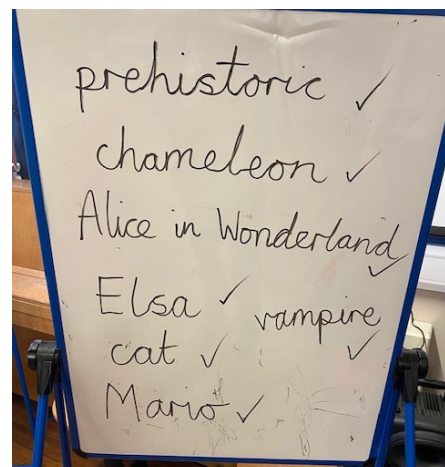 prehistoric ✓
chameleon ✓
Alice in Wonderland ✓
Elsa ✓
vampire ✓
cat ✓
Mario ✓